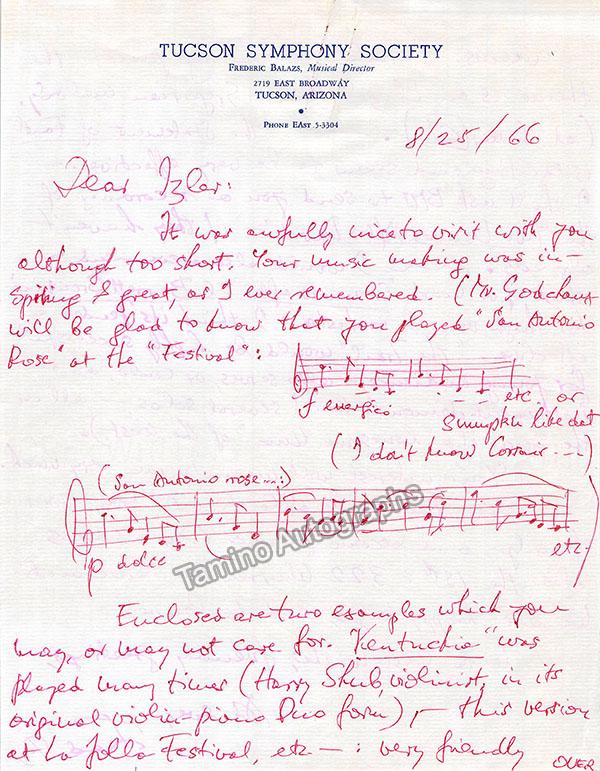 TUCSON SYMPHONY SOCIETY
FREDERIC BALAZS, Musical Director
2719 EAST BROADWAY
TUCSON, ARIZONA
PHONE EAST 5-3304
8/25/66
Dear Izler:
It was awfully nice to visit with you
although too short. Your music making was in-
spiring & great, as I ever remembered. (Mr. Godchaux
will be glad to know that you played "San Antonio
Rose" at the "Festival":
f energico
etc. or
like dat
(I don't know Corsair ---)
(San Antonio rose...:)
p dolce
etc.
Tamino Autographs
Enclosed are two examples which you
may, or may not care for. "Kentuckia" was
played many times (Harry Shub, violinist, in its
original violin-piano Duo form), - this version
at La Jolla Festival, etc - : very friendly
OVER